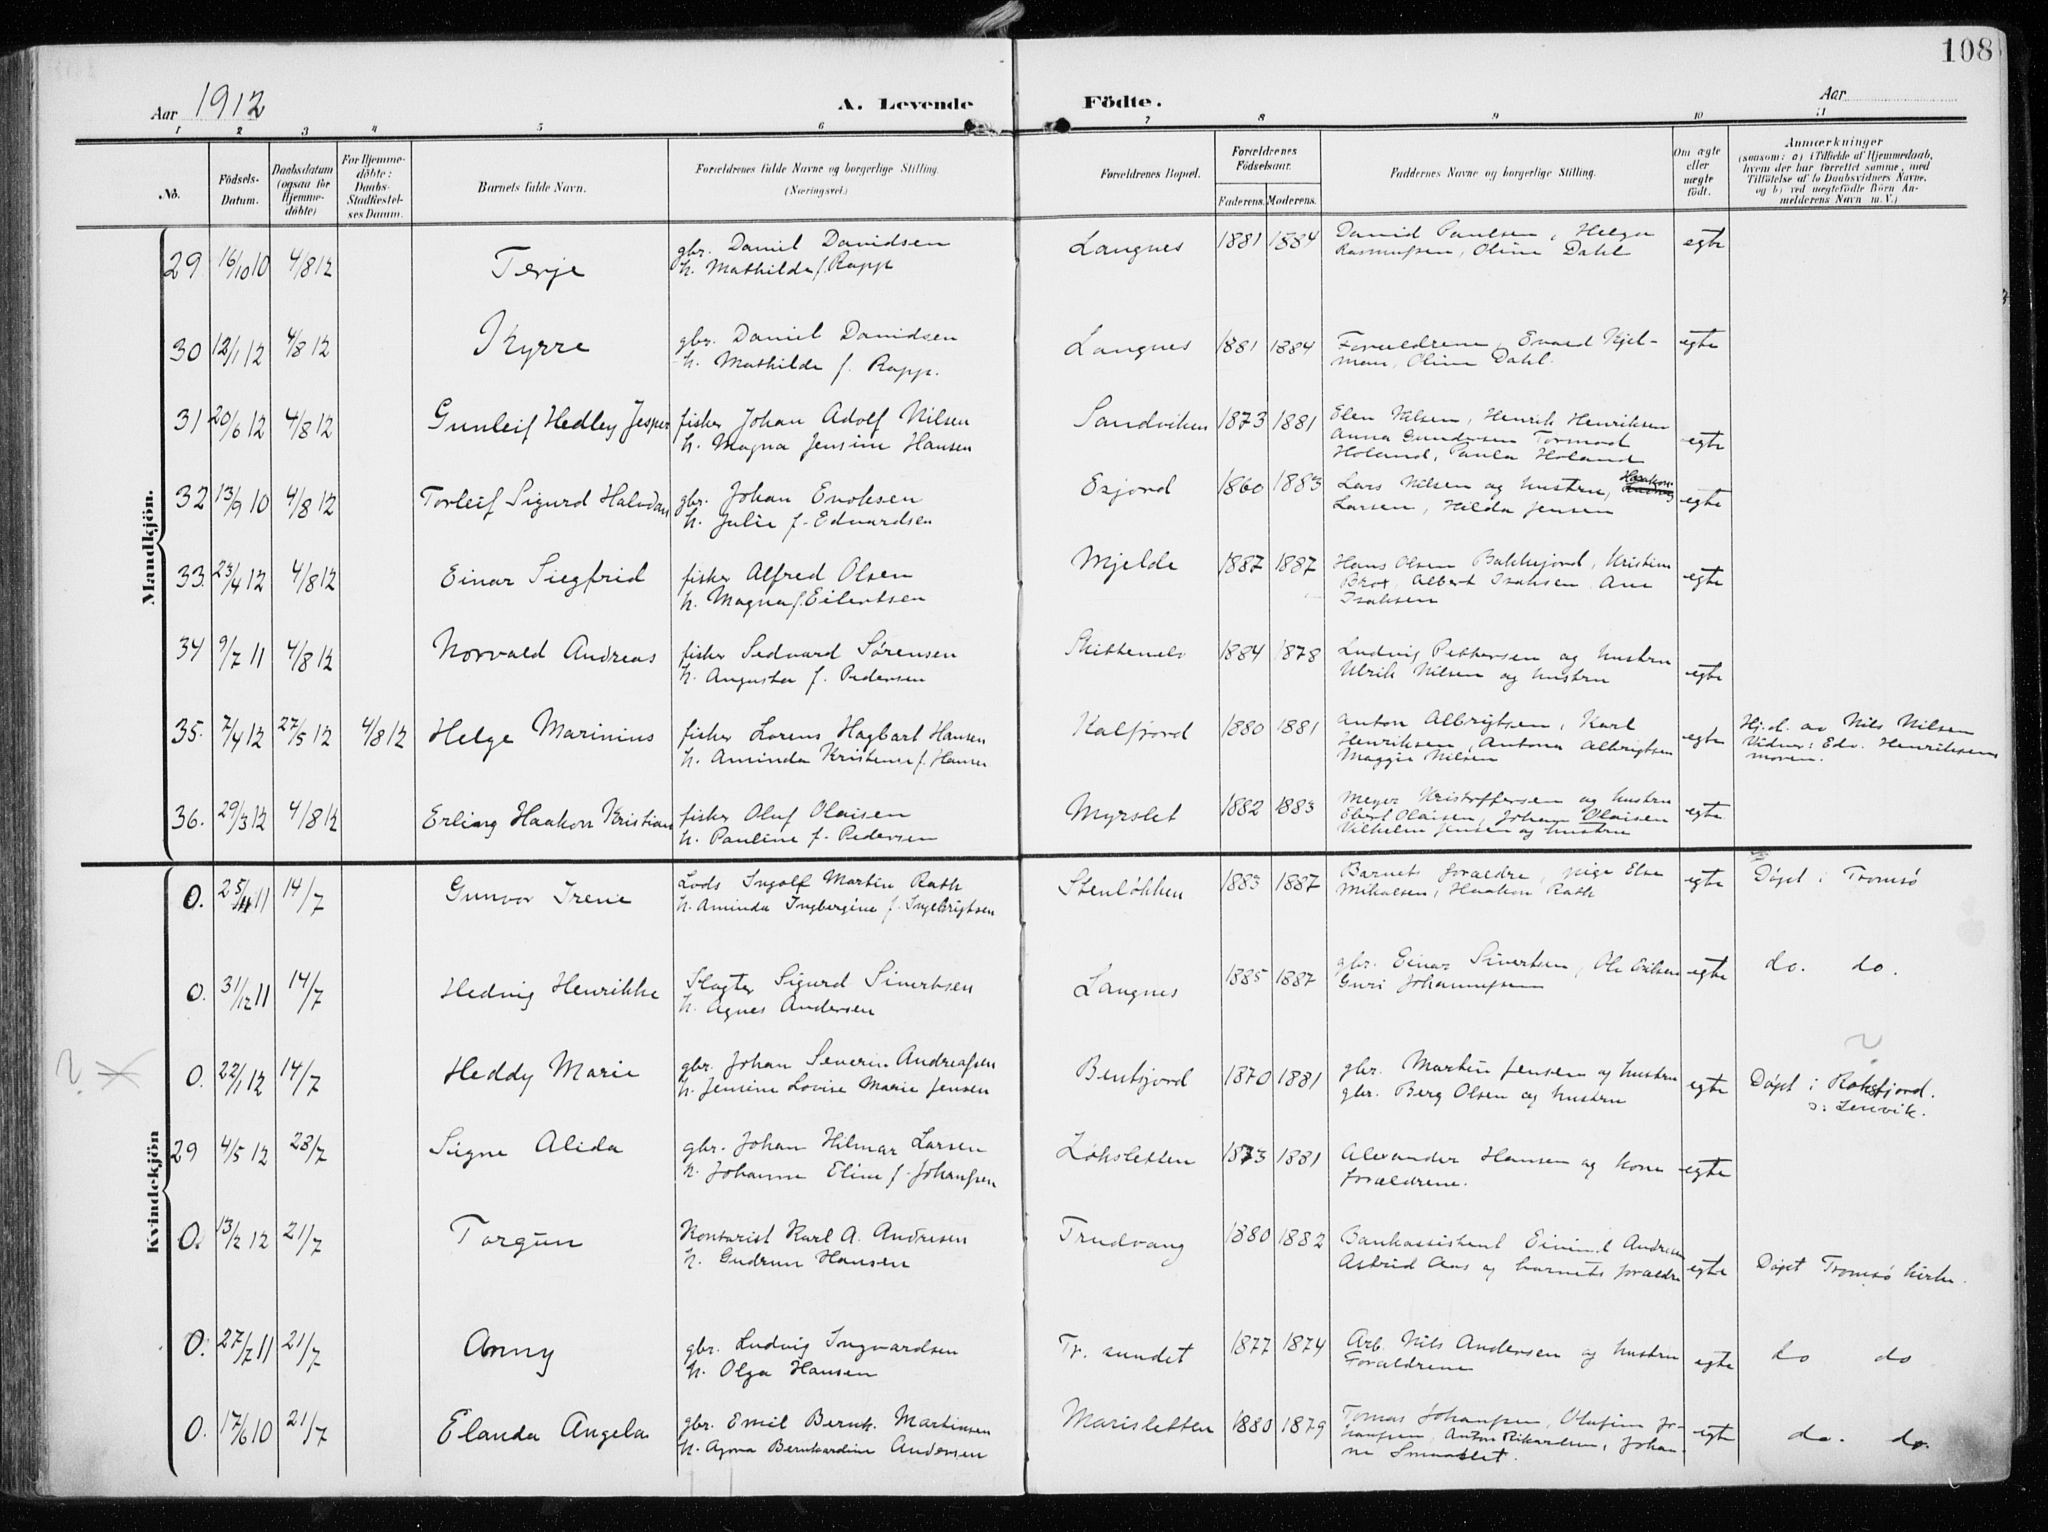 108
Aar 1912
A. Levende Födte.
Aar
1 2 3 4 5 6 7 8 9 10 11
No.
Födsels-Datum.
Daabsdatum (ogsaa for Hjemme-döbte)
For Hjemme-döbte: Daabs-Stadfæstel-ses Datum.
Barnets fulde Navn.
Forældrenes fulde Navne og borgerlige Stilling. (Næringsvei.)
Forældrenes Bopæl.
Forældrenes Födselsaar.
Faderens. Moderens.
Faddernes Navne og borgerlige Stilling.
Om ægte eller uægte født.
Anmærkninger
(saasom: a) i Tilfælde af Hjemmedaab,
hvem der har forrettet samme, med
Tilföielse af to Daabsvidners Navne,
og b) ved uægtefödte Börn An-
melderens Navn m. V.)
Mandkjön.
29 16/10 10 4/8 12 Terje gbr. Daniel Davidsen Langnes 1881 1884 David Paulsen, Helga egte
h. Mathilde f. Rapp Rasmussen, Oline Dahl
30 12/1 12 4/8 12 Kyrre gbr. Daniel Davidsen Langnes 1881 1884 Forældrene, Evald Kjel- egte
h. Mathilde f. Rapp. man, Oline Dahl.
31 20/6 12 4/8 12 Gunleif Hedley Jesper fisker Johan Adolf Nilsen Sandviken 1873 1881 Elen Nilsen, Henrik Henriksen
h. Magna Jensine Hansen Anna Gundersen Tormod egte
Holand, Paula Holand
32 13/9 10 4/8 12 Torleif Sigurd Halvdan gbr. Johan Enoksen Exjord 1860 1883 Lars Nilsen og hustru, Haakon
h. Julie f. Edvardsen Larsen, Hilda Jensen egte
33. 23/4 12 4/8 12 Einar Siegfrid fisker Alfred Olsen Mjelde 1887 1887 Hans Olsen Bakkejord, Kristian
h. Magna f. Eilertsen Brox, Albert Isaksen, Ane egte
Isaksen
34 9/7 11 4/8 12 Norvald Andreas fisker Sedvard Sørensen Skittenelv 1884 1878 Ludvig Pettersen og hustru
h. Augusta f. Pedersen Ulrik Nilsen og hustru egte
35. 7/4 12 27/5 12 4/8 12 Helge Marinius fisker Lorens Hagbart Hansen Kalfjord 1880 1881 Anton Albrigtsen, Karl Hj.d. av Nils Nilsen
h. Aminda Kristense f. Hansen Henriksen, Antona Albrigtsen egte Vidner: Edv. Henriksen
Maggie Nilsen moren.
36. 29/3 12 4/8 12 Erling Haakon Kristian fisker Oluf Olaisen Myrslet 1882 1883 Meyer Kristoffersen og hustru
h. Pauline f. Pedersen Ebert Olaisen, Johan Olaisen egte
Vilhelm Jensen og hustru
Kvindekjön
0. 25/11 11 14/7 Gunvor Irene Lods Ingolf Martin Rath Stenløkken 1883 1887 Barnets forældre, pige Else egte Døpt i Tromsø
h. Aminda Ingbergine f. Ingebrigtsen Mikalsen, Haakon Rath
0. 31/12 11 14/7 Hedvig Henrikke Slagter Sigurd Sivertsen Langnes 1885 1887 gbr. Einar Sivertsen, Ole Eriksen egte do. do.
h. Agnes Andersen Guri Johannessen
? 0. 22/1 12 14/7 Heddy Marie gbr. Johan Severin Andreassen Bentsjord 1870 1881 gbr. Martin Jensen og hustru egte Døpt i Roksfjord. ?
h. Jensine Lovise Marie Jensen gbr. Berg Olsen og hustru s: Lenvik.
29 4/5 12 28/7 Signe Alida gbr. Johan Hilmar Larsen Løksletten 1873 1881 Alexander Hansen og kone egte
h. Johanne Eline f. Johansen forældrene.
0. 13/2 12 21/7 Torgun Kontorist Karl A. Andresen Trudvang 1880 1882 Bankassistent Eivind Andresen
h. Gudrun Hansen Astrid Aas og barnets forældre egte Døpt Tromsø kirke.
0. 27/7 11 21/7 Anny gbr. Ludvig Ingvardsen Tr. sundet 1877 1874 Arb. Nils Andersen og hustru egte do do
h. Olga Hansen Forældrene
0. 17/6 10 21/7 Elanda Angela gbr. Emil Bernh. Martinsen Marisletten 1880 1879 Tomas Johansen, Olufine Jo-
h. Agona Bernhardine Andersen hansen, Anton Rikardsen, Johan- egte do. do.
ne Smaaslet.